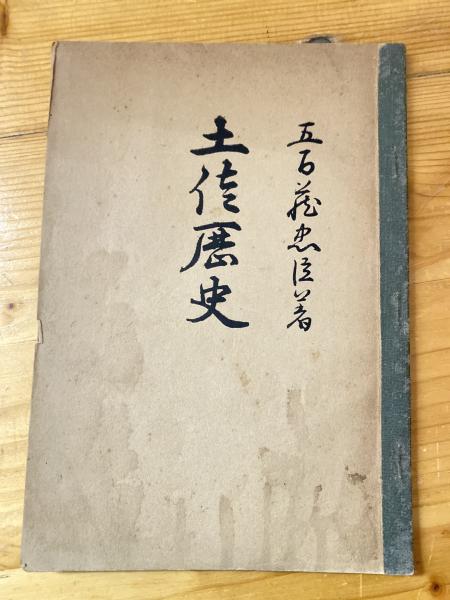 五百蔵忠臣著
土佐歴史